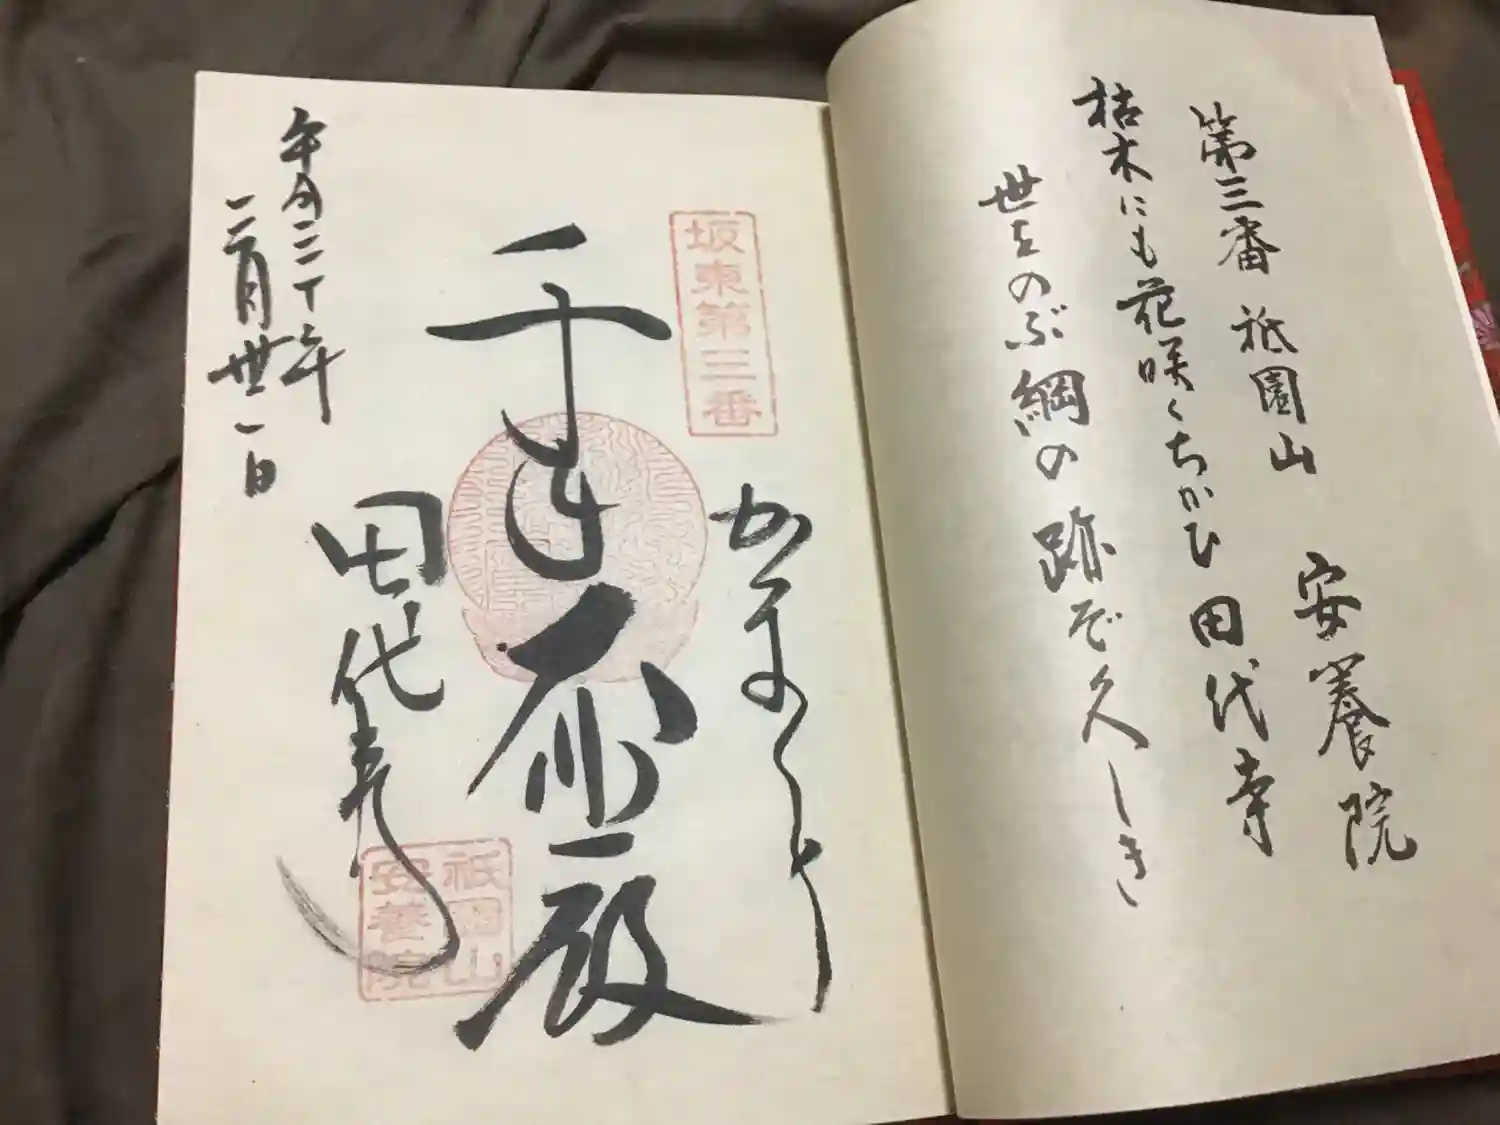 第三番 祇園山 安養院
枯木にも花咲くちかひ田代寺
世を のぶ綱の跡ぞ久しき
坂東第三番
かまくら
千手大悲殿
田代寺
祇園山
安養院
年
二月廿一日